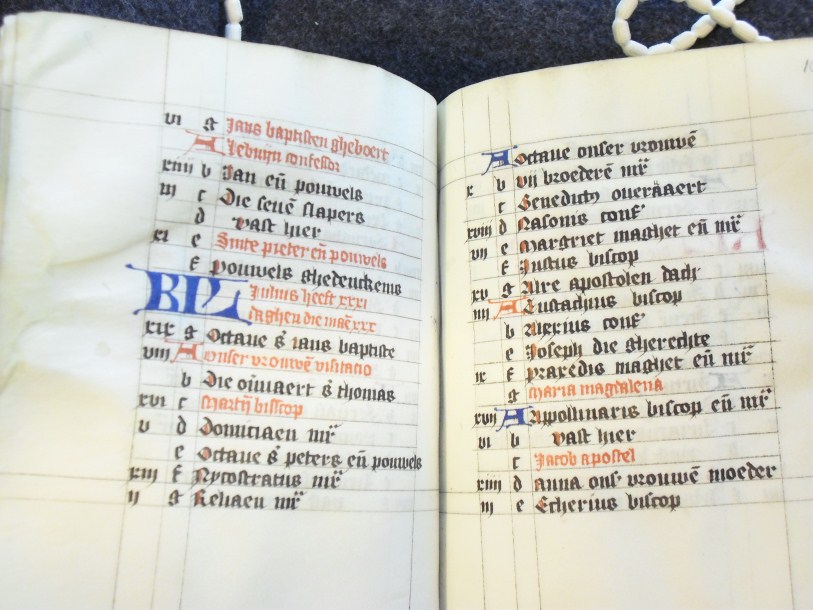 vi g Jans baptisten gheboert
A Lebuijn confessor
xiiii b Jan eñ pouwels
iii c Die seuē slapers
d vast hier
xi e Sinte pieter eñ pouwels
f Pouwels ghedenckenis
KL Julius heeft xxxi
daghen die maē xxx
xix g Octaue s̄ jans baptiste
viii A onser vrouwē visitatio
b Die ouuaert s̄ thomas
xvi c Martij bisscop
v d Domiciaen mr̄
e Octaue s̄ peters eñ pouwels
xiii f Nycostratus mr̄
ii g Keliaen mr̄
A Octaue onser vrouwē
x b vij broederē mr̄
c Benedicty oueruaert
xviii d Nasonis conf
vii e Margriet maghet eñ mr̄
f Justus biscop
xv g Alre apostolen dach
iiii A Eustachius biscop
b Alexius conf
e Joseph die gherechte
ix f praxedis maghet eñ mr̄
g Maria magdalena
xvii A Appollinaris biscop eñ mr̄
vi b vast hier
c Jacob apostel
xiiii d anna ons vrouwen moeder
iii e Etherius biscop